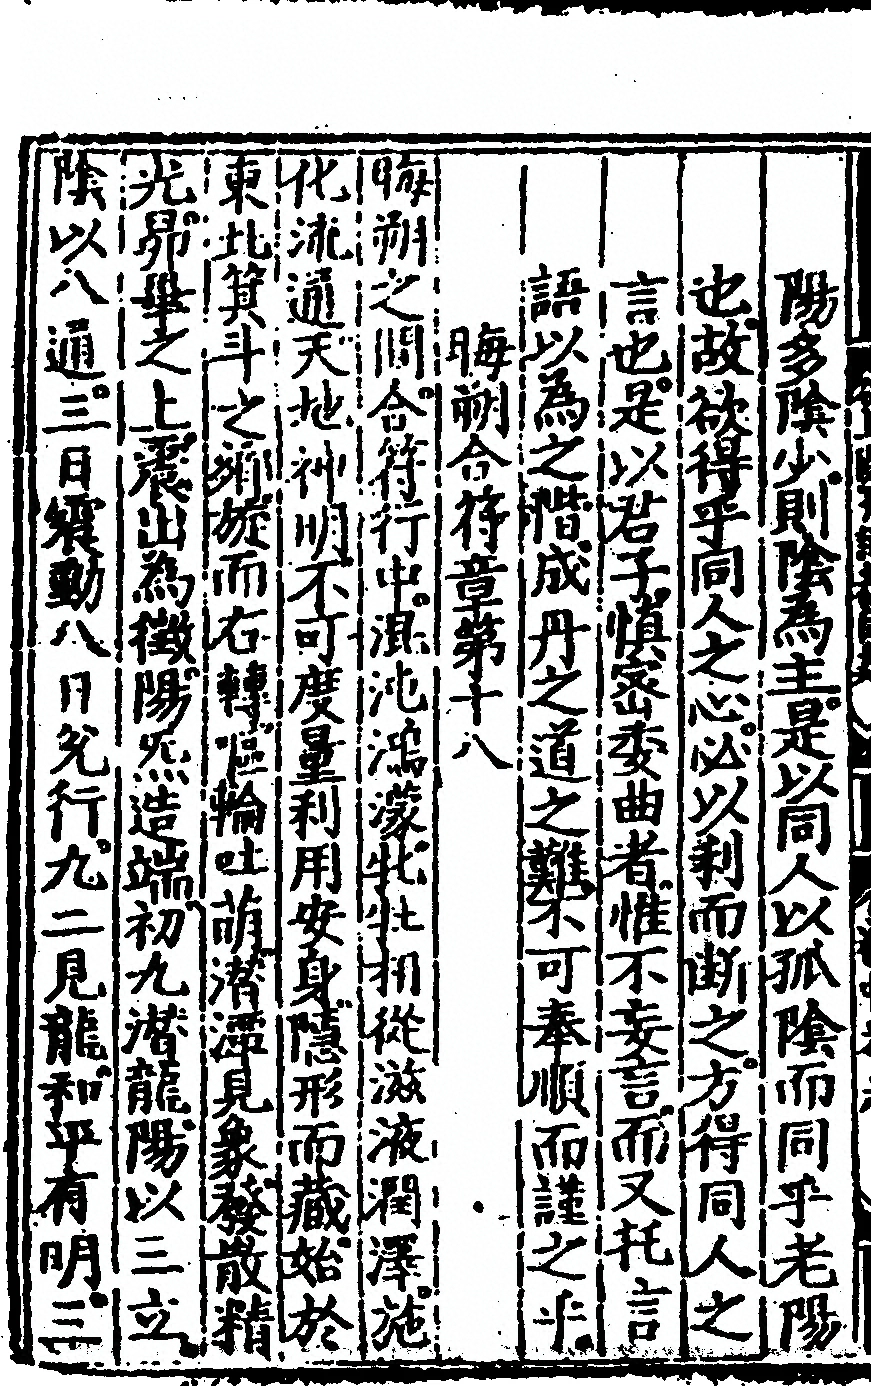 陽多陰少則陰為主是以同人以孤陰而同乎老陽
也故欲得乎同人之心必以剥而斷之方得同人之
言也是以君子慎密委曲者惟不妄言而又托言
語以為之惜成丹之道之難不可奉順而謹之乎
晦朔合符章第十八
晦朔之間合符行中混沌鴻濛牝牡相從滋液潤澤施
化流通天地神明不可度量利用安身隱形而藏始於
東北箕斗之鄉旋而右轉嘔輪吐萌潜潭見象發散精
光昴畢之上震出為徵陽炁造端初九潜龍陽以三立
陰以八通三日震動八日兌行九二見龍和平有明三